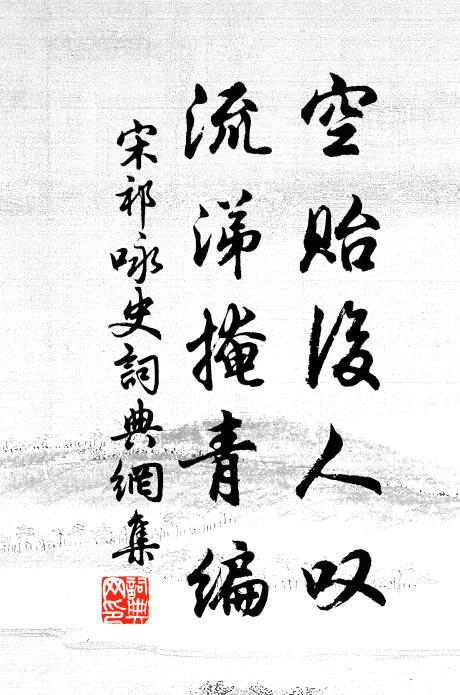 空贻後人叹
流涕掩青编
宋祁咏史詞典網集
詞典